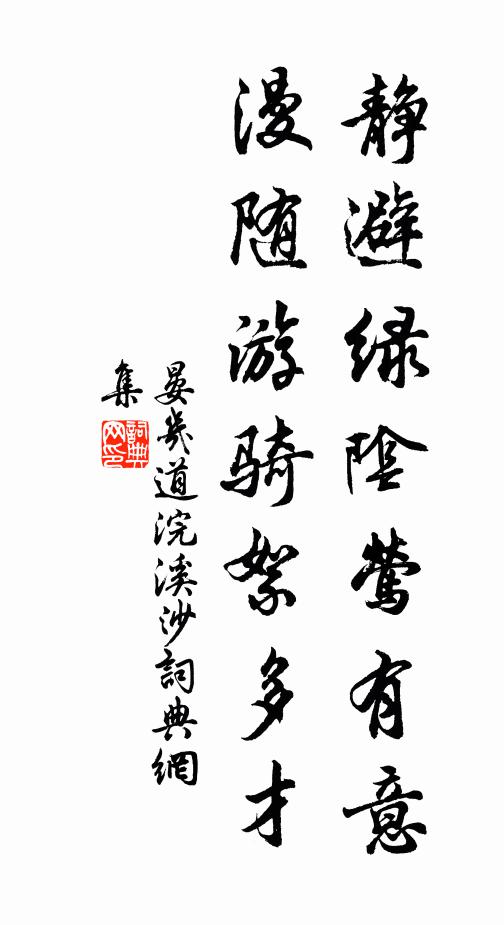 静避绿陰莺有意
漫随游骑絮多才
晏幾道浣溪沙詞典網
集
詞典
网印